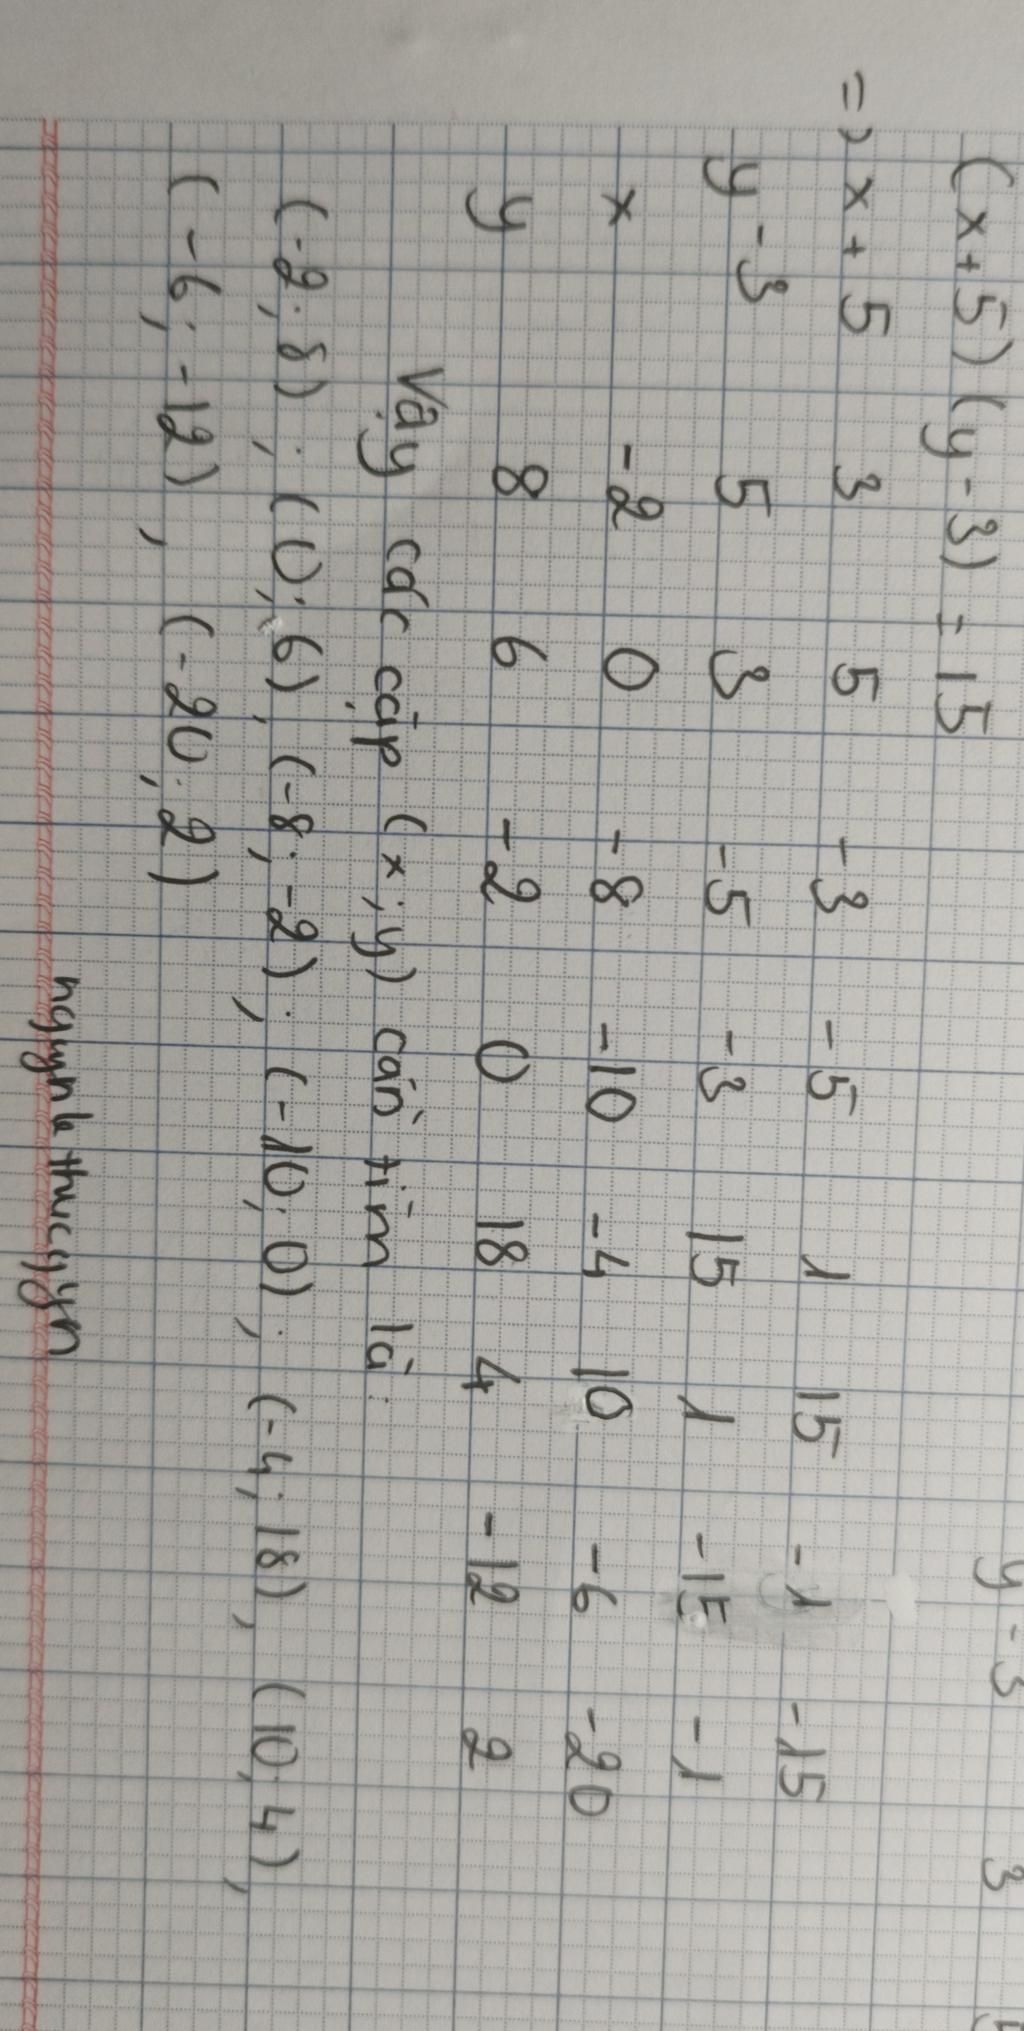 y - 3 3
(x + 5) (y - 3) = 15
=> x + 5 3 5 -3 -5 1 15 -1 -15
y - 3 5 3 -5 -3 15 1 -15 -1
x -2 0 -8 -10 -4 10 -6 -20
y 8 6 -2 0 18 4 -12 2
Vậy các cặp (x ; y) cần tìm là :
(-2 ; 8) ; (0 ; 6) ; (-8 ; -2) ; (-10 ; 0) ; (-4 ; 18) , (10 ; 4) ,
(-6 ; -12) , (-20 ; 2)